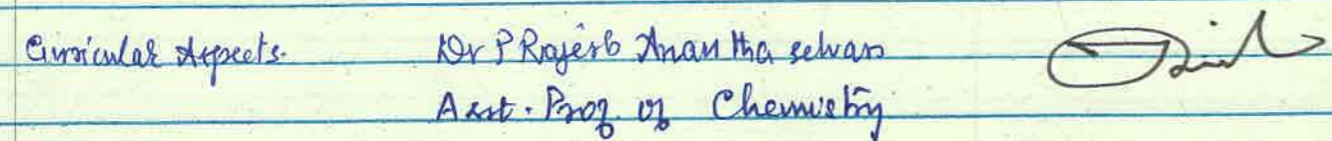 Curricular Aspects. Dr P Rajesh Anantha selvan
Asst. Prof of Chemistry